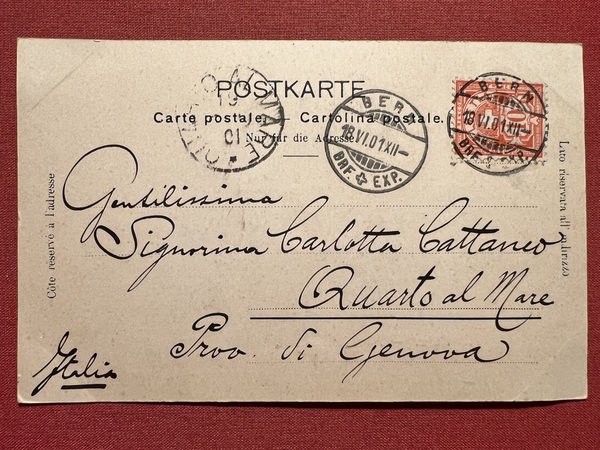 POSTKARTE
Carte postale. Cartolina postale.
Nur für die Adresse
Côté réservé à l'adresse
Lato riservata all' indirizzo
QUARTO AL MARE
19
6
01
BERN
18.VI.01.XII-
BRF. EXP.
BERN
18.VI.01.XII-
BRF. EXP.
10
Gentilissima
Signorina Carlotta Cattaneo
Quarto al Mare
Prov. di Genova
Italia